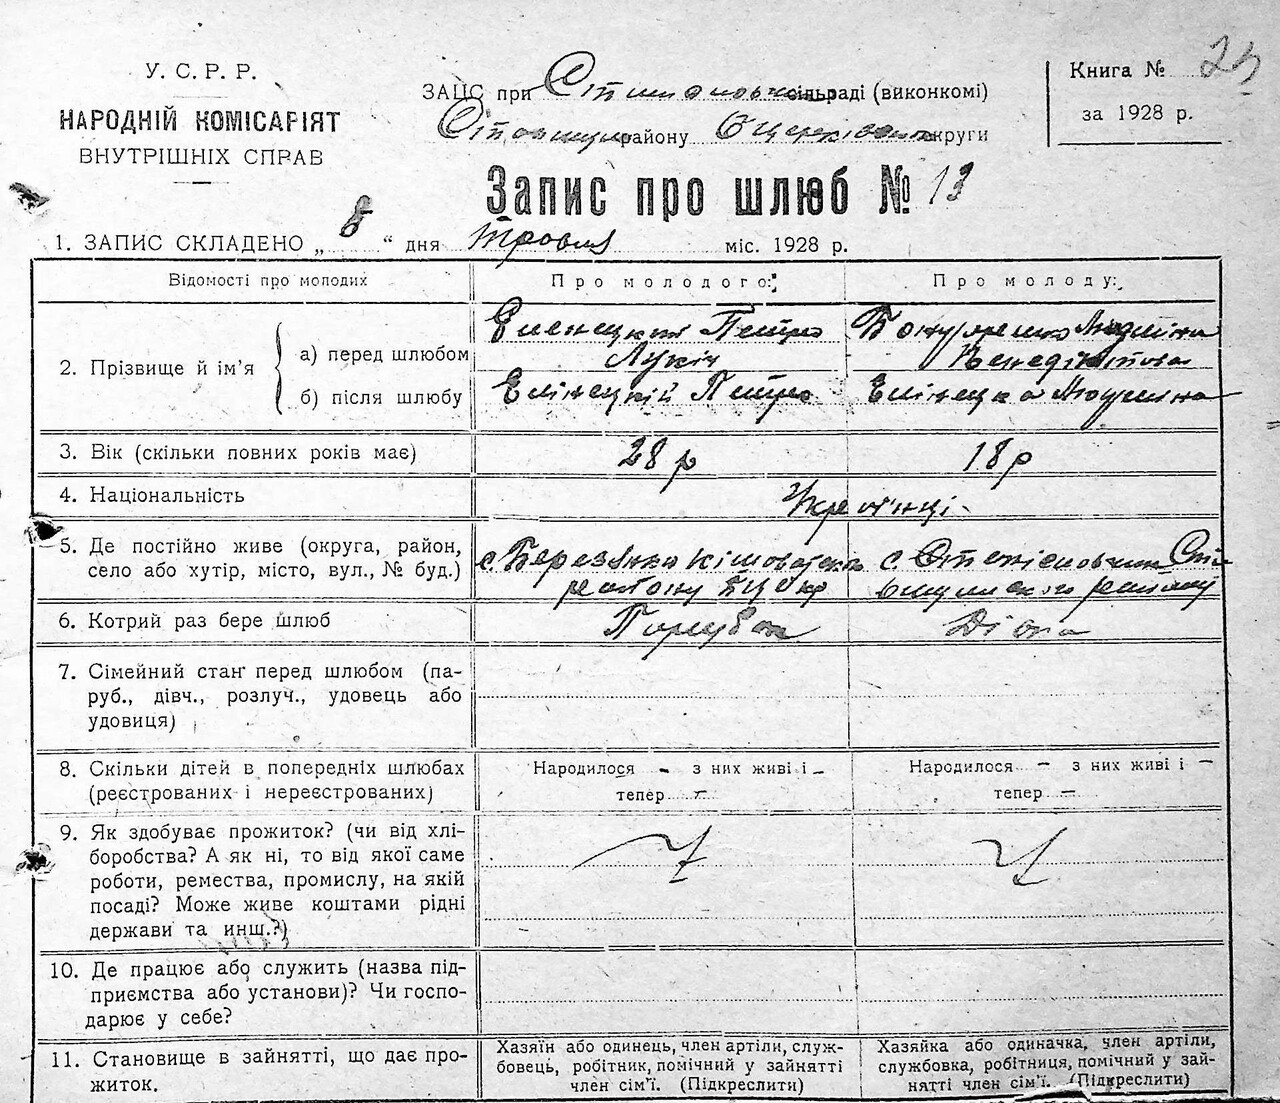 У. С. Р. Р.
НАРОДНІЙ КОМІСАРІЯТ
ВНУТРІШНІХ СПРАВ
ЗАЦС при сільраді (виконкомі)
району округи
Книга №
за 1928 р.
Запис про шлюб № 13
1. ЗАПИС СКЛАДЕНО „ 8 “ дня травня міс. 1928 р.
Відомості про молодих
Про молодого:
Про молоду:
2. Прізвище й ім’я
а) перед шлюбом
Петро
Лукіч
б) після шлюбу
Елінецкій Петро
Елінецка Людміла
3. Вік (скільки повних років має)
28 р
18 р
4. Національність
Українці
5. Де постійно живе (округа, район,
село або хутір, місто, вул., № буд.)
с. Березянка
району
с.
району
6. Котрий раз бере шлюб
Парубок
Дівка
7. Сімейний стан перед шлюбом (па-
руб., дівч., розлуч., удовець або
удовиця)
8. Скільки дітей в попередніх шлюбах
(реєстрованих і нереєстрованих)
Народилося - з них живі і -
тепер -
Народилося - з них живі і -
тепер -
9. Як здобуває прожиток? (чи від хлі-
боробства? А як ні, то від якої саме
роботи, ремества, промислу, на якій
посаді? Може живе коштами рідні
держави та инш.?)
10. Де працює або служить (назва під-
приємства або установи)? Чи госпо-
дарює у себе?
11. Становище в зайнятті, що дає про-
житок.
Хазяїн або одинець, член артіли, служ-
бовець, робітник, помічний у зайнятті
член сім’ї. (Підкреслити)
Хазяйка або одиначка, член артіли,
службовка, робітниця, помічний у зай-
нятті член сім’ї. (Підкреслити)